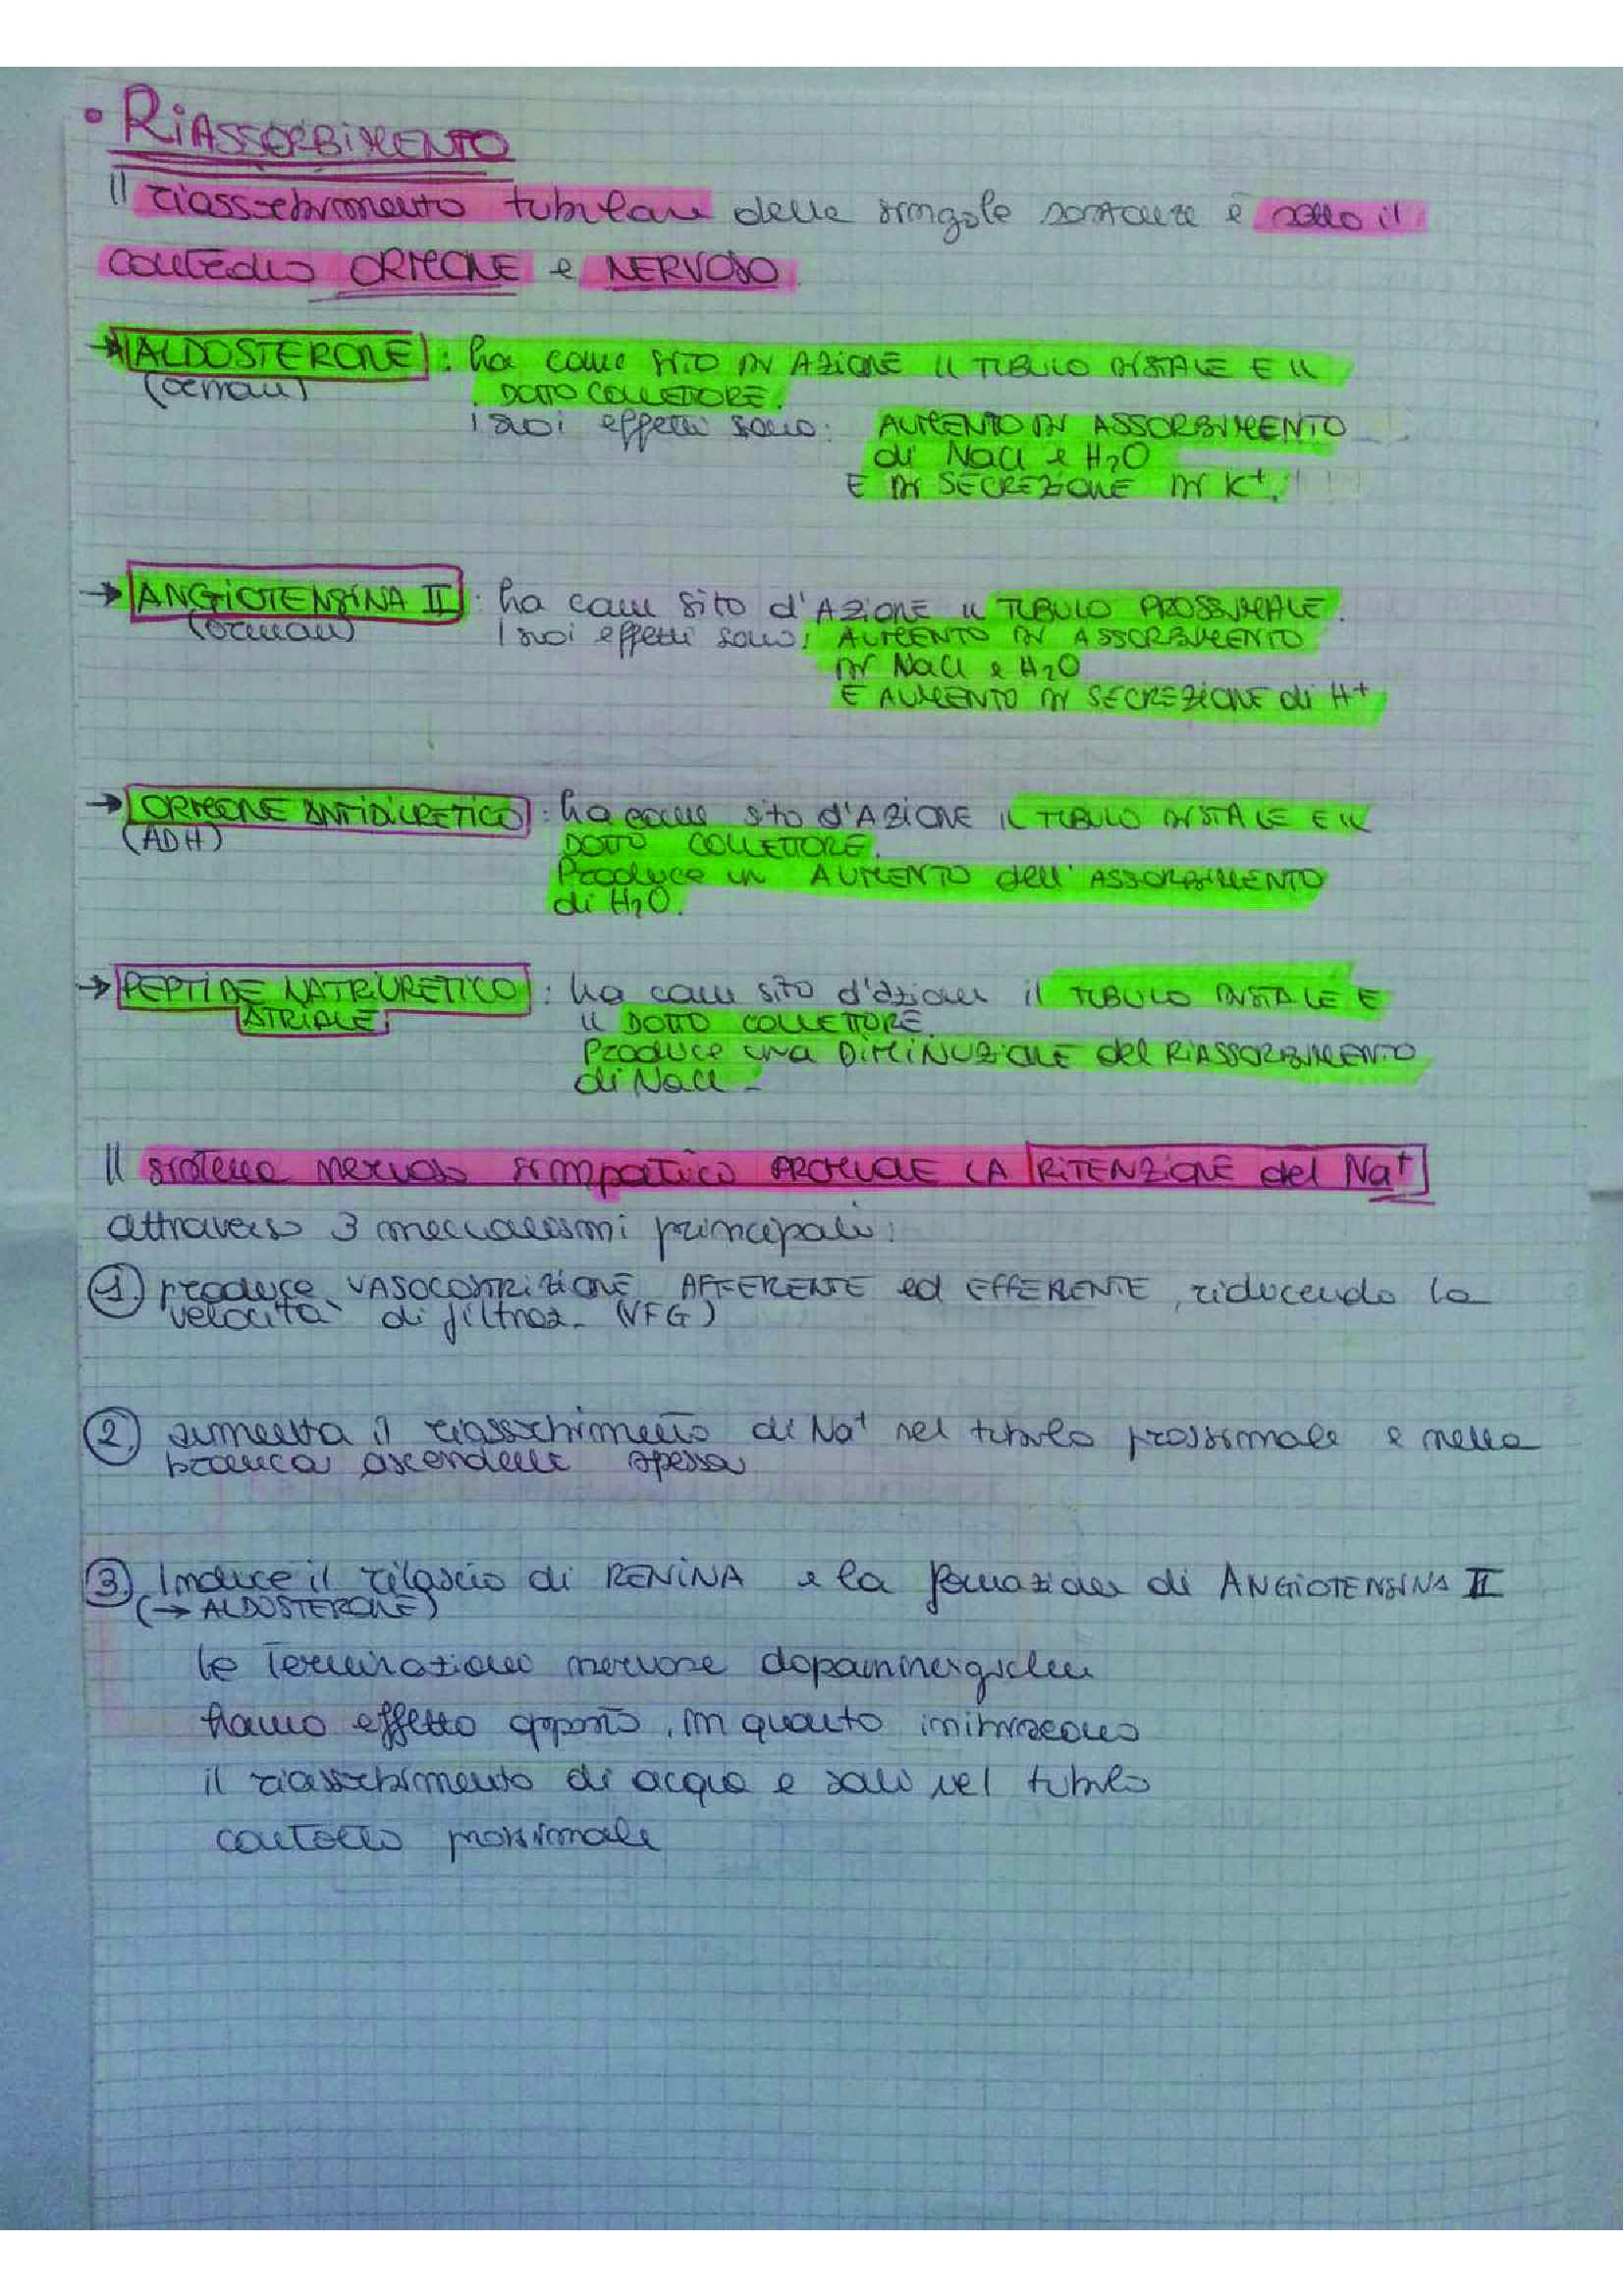 • RIASSORBIMENTO
Il riassorbimento tubulare delle singole sostanze è sotto il
controllo ORMONE e NERVOSO
→ ALDOSTERONE : ha come SITO DI AZIONE IL TUBULO DISTALE E IL
(ormone) DOTTO COLLETTORE.
I suoi effetti sono: AUMENTO DI ASSORBIMENTO
di NaCl e H₂O
E DI SECREZIONE DI K⁺.
→ ANGIOTENSINA II : ha come sito d'AZIONE IL TUBULO PROSSIMALE.
(ormone) I suoi effetti sono: AUMENTO DI ASSORBIMENTO
DI NaCl e H₂O
E AUMENTO DI SECREZIONE di H⁺
→ ORMONE ANTIDIURETICO : ha come sito d'AZIONE IL TUBULO DISTALE E IL
(ADH) DOTTO COLLETTORE.
Produce un AUMENTO dell'ASSORBIMENTO
di H₂O.
→ PEPTIDE NATRIURETICO : ha come sito d'azione il TUBULO DISTALE E
ATRIALE IL DOTTO COLLETTORE.
Produce una DIMINUZIONE del RIASSORBIMENTO
di NaCl -
Il sistema nervoso simpatico PROMUOVE LA RITENZIONE del Na⁺
attraverso 3 meccanismi principali:
1. produce VASOCOSTRIZIONE AFFERENTE ed EFFERENTE, riducendo la
velocità di filtraz. (VFG)
2. aumenta il riassorbimento di Na⁺ nel tubulo prossimale e nella
branca ascendente spessa
3. Induce il rilascio di RENINA e la formazione di ANGIOTENSINA II
(→ ALDOSTERONE)
le Terminazioni nervose dopaminergiche
hanno effetto opposto, in quanto inibiscono
il riassorbimento di acqua e sali nel tubulo
contorto prossimale